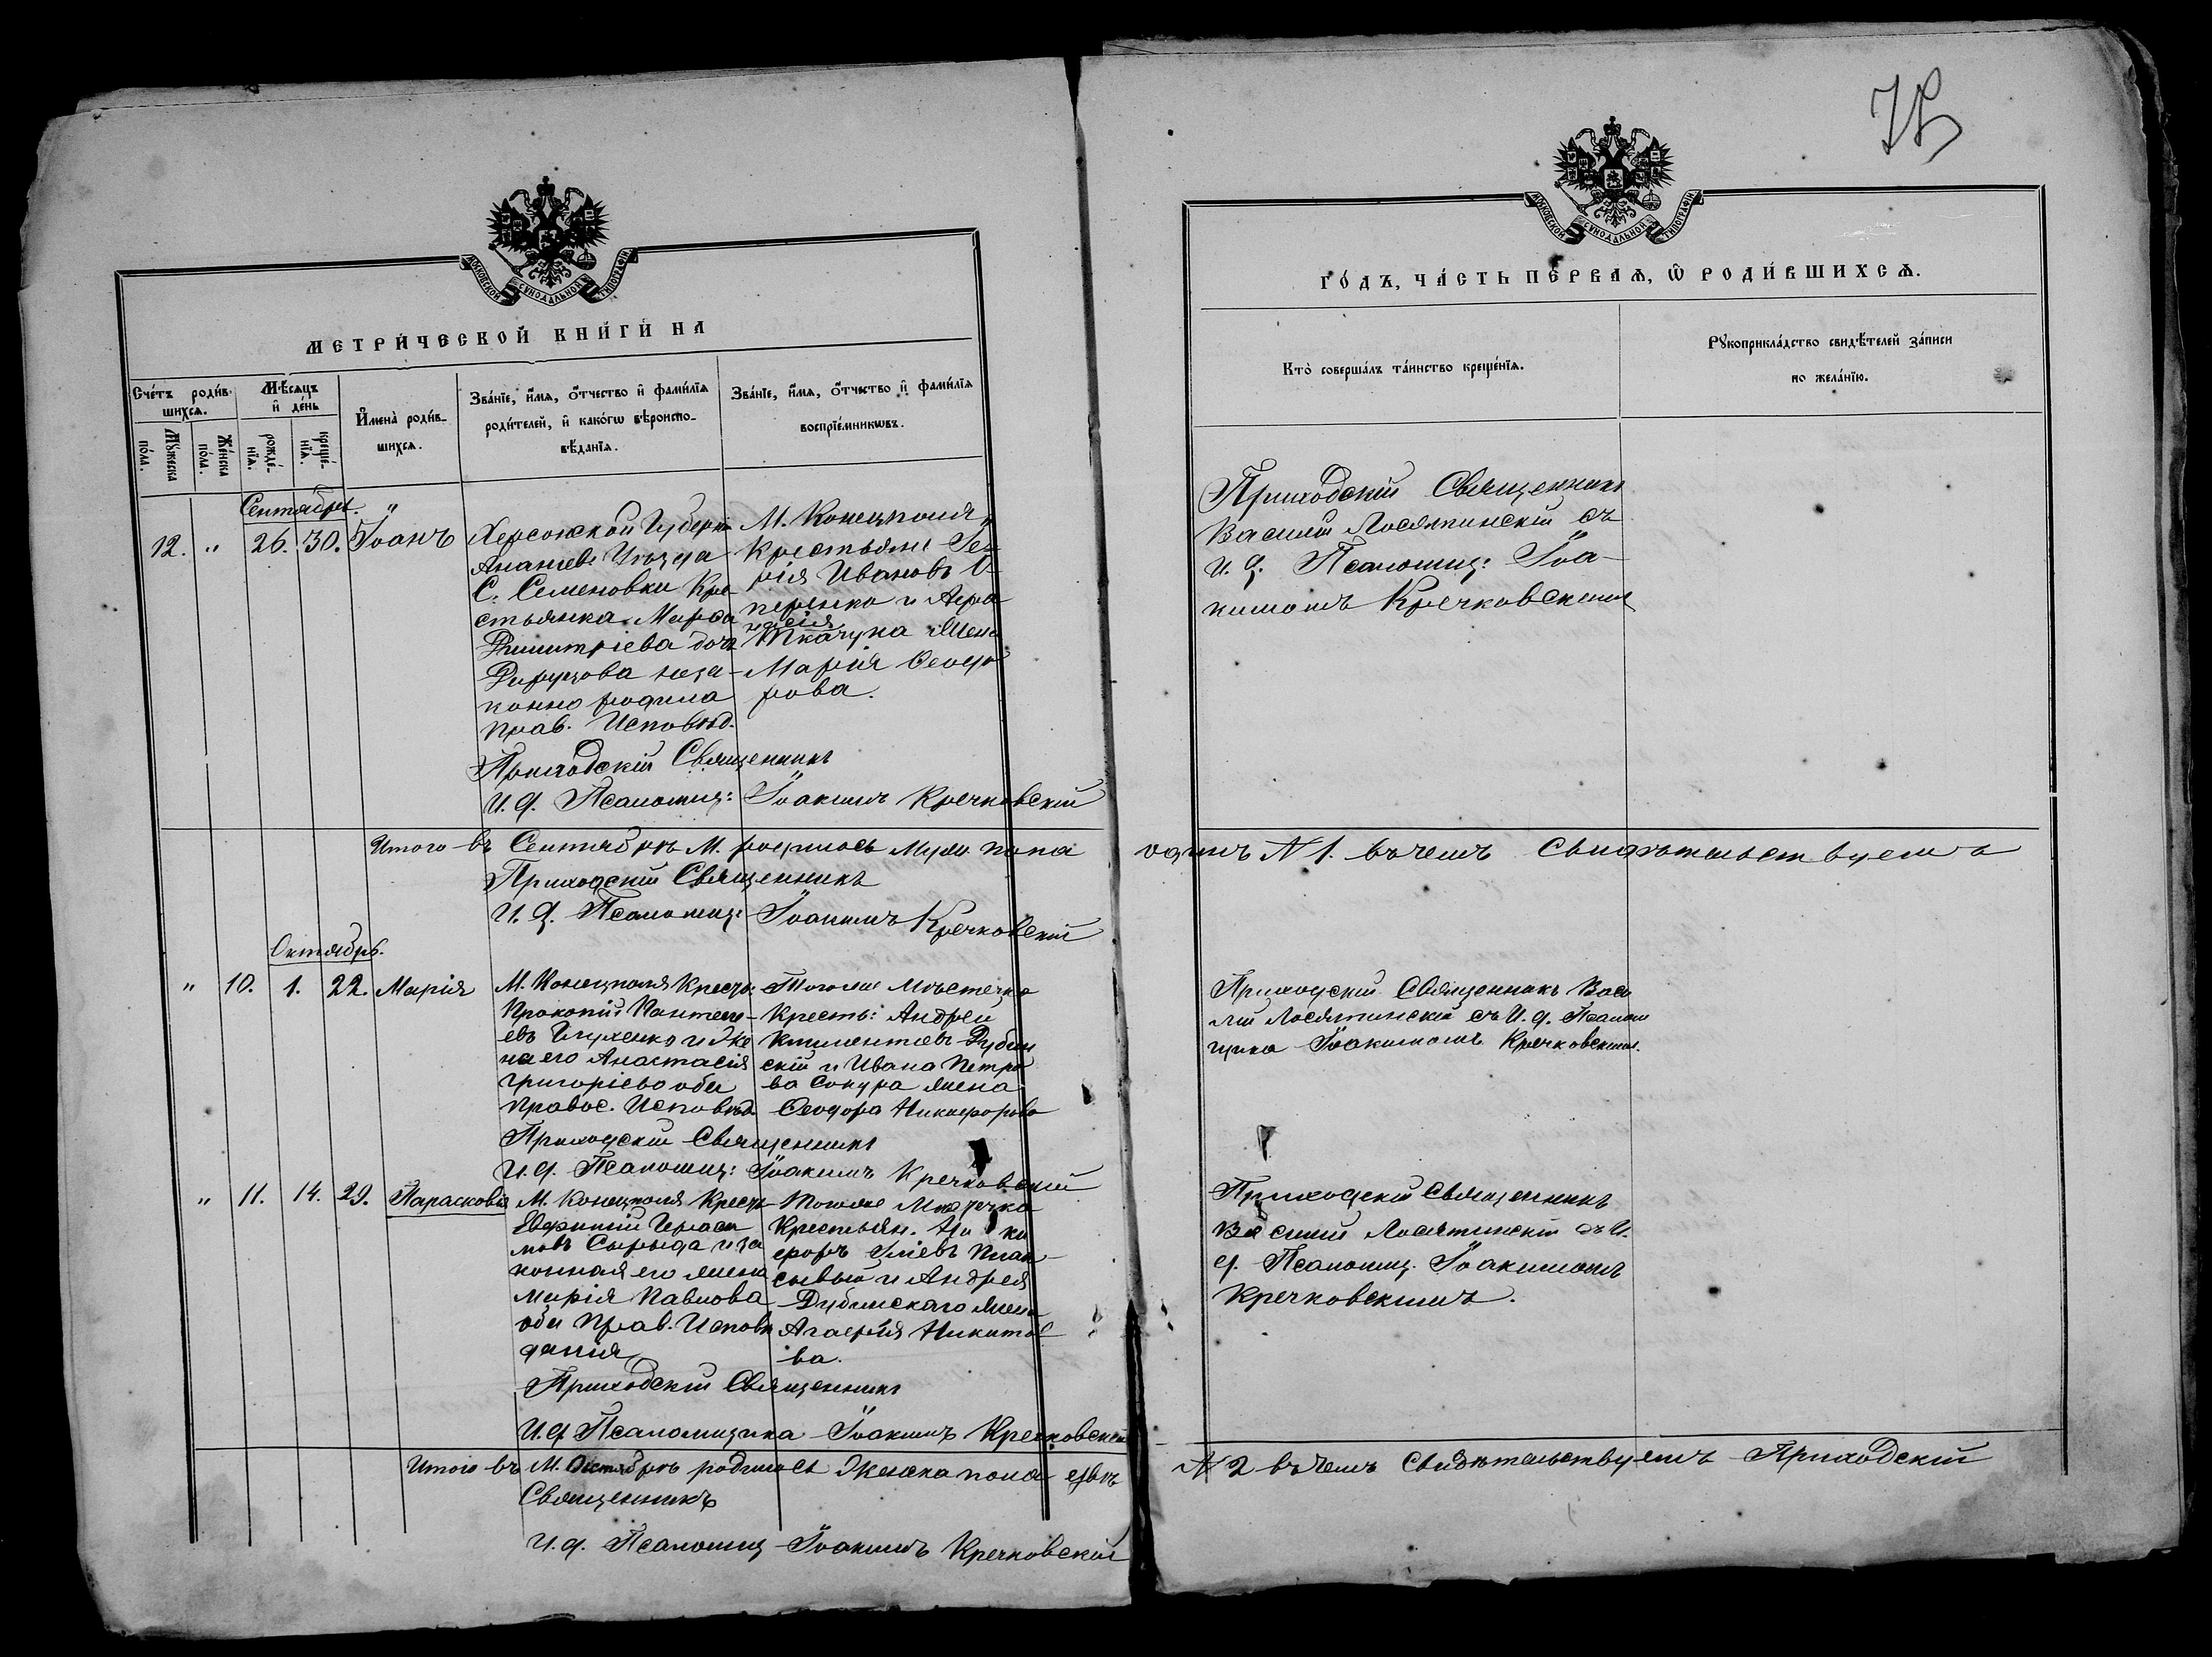 78
МОСКОВСКОЙ СѴНОДАЛЬНОЙ ТИПОГРАФІИ
МЕТРИ́ЧЕСКОЙ КНИ́ГИ НА
Сче́тъ роди́вшихсѧ.
Мꙋ́жеска по́ла.
Же́нска по́ла.
Мѣ́сѧцъ и҆ де́нь
рожде́нїѧ.
креще́нїѧ.
И҆мена̀ роди́вшихсѧ.
Зва́нїе, и҆́мѧ, ѻ҆́тчество и҆ фами́лїѧ
роди́телей, и҆ како́гѡ вѣроиспо-
вѣ́данїѧ.
Зва́нїе, и҆́мѧ, ѻ҆́тчество и҆ фами́лїѧ
воспрїе́мникѡвъ.
Сентябрь.
12. " 26. 30. Іоанъ
Херсонской Губерніи
Ананіев: Уѣзда
С. Семеновки Кре
стьянка Марѳа
Димитріева дочь
неза-
конно родила
прав. Исповѣд.
М. Конецполя
Крестьяне
Ивановъ
и
Ткачука жена
Марія Ѳеодо
рова.
Приходскій Священникъ
И. д. Псаломщ: Іоакимъ Кречковскій
Итого въ Сентябрѣ М. родилось Муж. пола
Приходскій Священникъ
И. д. Псаломщ: Іоакимъ Кречковскій
Октябрь.
" 10. 1. 22. Марія
М. Конецполя Крест.
Прокопій Пантеле-
евъ и Же
на его Анастасія
Григоріева оба
Правос. Исповѣд.
Тогоже Мѣстечка
Кресть: Андрей
Климентіевъ Дубин
скій и Ивана Петро
ва Сокура жена
Ѳеодора Никифорова
Приходскій Священникъ
И. д. Псаломщ: Іоакимъ Кречковскій
" 11. 14. 29. Парасковія
М. Конецполя Крест.
Евфимій Гераси
мовъ и за
конная его жена
Марія Павлова
оба Прав. Исповѣ
данія
Тогоже Мѣстечка
Крестьян. Ни ки
форъ
и Андрея
Дубинскаго жена
Агафія Никито
ва.
Приходскій Священникъ
И. д. Псаломщика Іоакимъ Кречковскій
Итого въ М. Октябрѣ родилось Женска пола двѣ
Священникъ
И. д. Псаломщ Іоакимъ Кречковскій
МОСКОВСКОЙ СѴНОДАЛЬНОЙ ТИПОГРАФІИ
ГО́ДЪ, ЧА́СТЬ ПЕ́РВАѦ, Ѽ РОДИ́ВШИХСѦ.
Кто̀ соверша́лъ та́инство креще́нїѧ.
Рꙋкоприкла́дство свидѣ́телей за́писи
по жела́нїю.
Приходскій Священникъ
Василій Лосятинскій съ
И. д. Псаломщ: Іоа-
кимомъ Кречковскимъ
одинъ N 1. въ чемъ свидѣтельствуемъ
Приходскій Священникъ Васи
лій Лосятинскій съ И. д. Псалом
щика Іоакимомъ Кречковскимъ.
Приходскій Священникъ
Василій Лосятинскій съ И.
д. Псаломщ. Іоакимомъ
Кречковскимъ.
N 2 въ чемъ свидѣтельствуемъ Приходскій